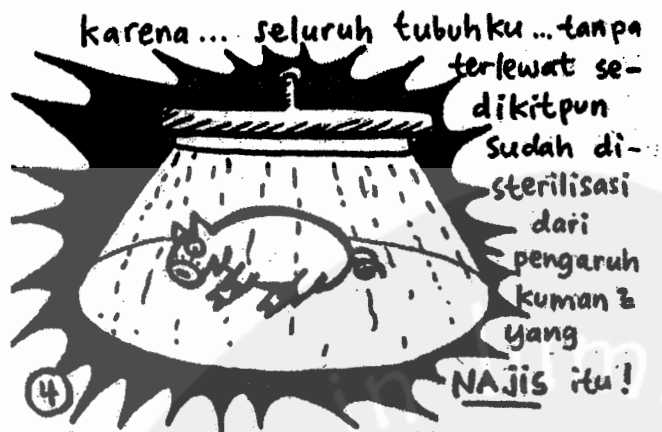 karena... seluruh tubuhku...tanpa
terlewat se-
dikitpun
sudah di-
sterilisasi
dari
pengaruh
kuman2
yang
NAJIS itu!
4